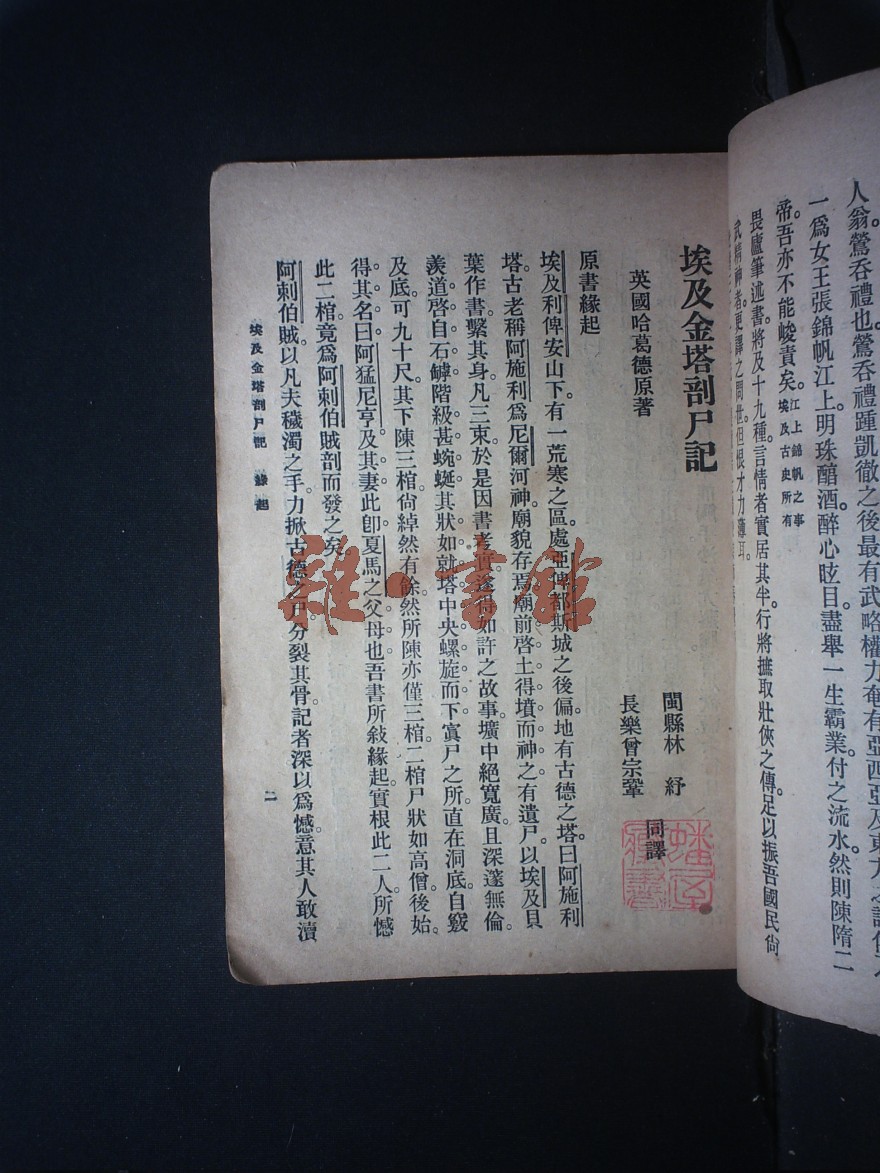 人翁。鶯吞禮也。鶯吞禮踵凱徹之後。最有武略權力。奄有亞西亞及東方之
一爲女王張錦帆江上。明珠醅酒。醉心眩目。盡舉一生霸業。付之流水。然則陳隋二
帝。吾亦不能峻責矣。江上錦帆之事埃及古史所有
畏廬筆述書。將及十九種。言情者實居其半。行將摭取壯俠之傳。足以振吾國民尙
武精神者。更譯之問世。但恨才力薄耳。
埃及金塔剖尸記
英國哈葛德原著
閩縣林 紓
長樂曾宗鞏
同譯
原書緣起
埃及利俾安山下。有一荒寒之區。處亞俾都斯城之後偏。地有古德之塔。曰阿施利
塔。古老稱阿施利爲尼爾河神。廟貌存焉。廟前啓土得墳。而神之有遺尸。以埃及貝
葉作書。繫其身凡三束。於是因書考實。遂得如許之故事。壙中絕寬廣。且深邃無倫。
羨道啓自石罅。階級甚蜿蜒。其狀如就塔中央螺旋而下。寘尸之所。直在洞底。自竅
及底。可九十尺。其下陳三棺。尙綽然有餘。然所陳亦僅三棺。二棺尸狀如高僧。後始
得其名曰阿猛尼亨。及其妻。此卽夏馬之父母也。吾書所敍緣起。實根此二人。所憾
此二棺。竟爲阿剌伯賊剖而發之矣。
阿剌伯賊以凡夫穢濁之手。力掀古德之尸。分裂其骨。記者深以爲憾。意其人敢瀆
埃及金塔剖尸記 緣起
一
雜·書館